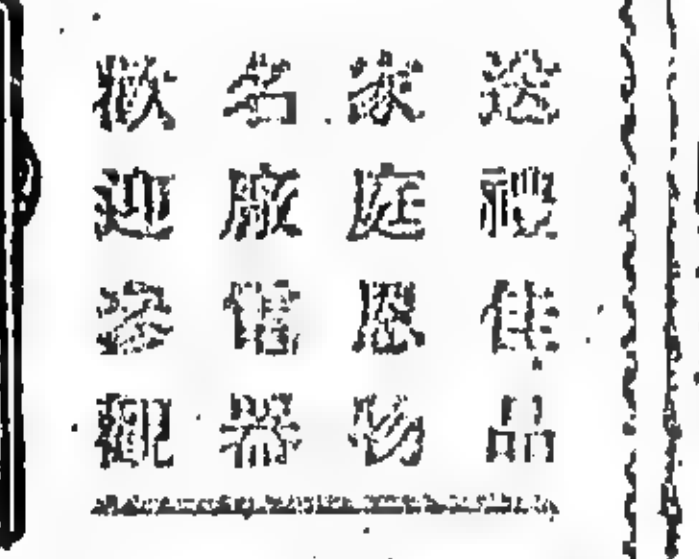 送禮佳品
家庭恩物
名廠器
歡迎參觀